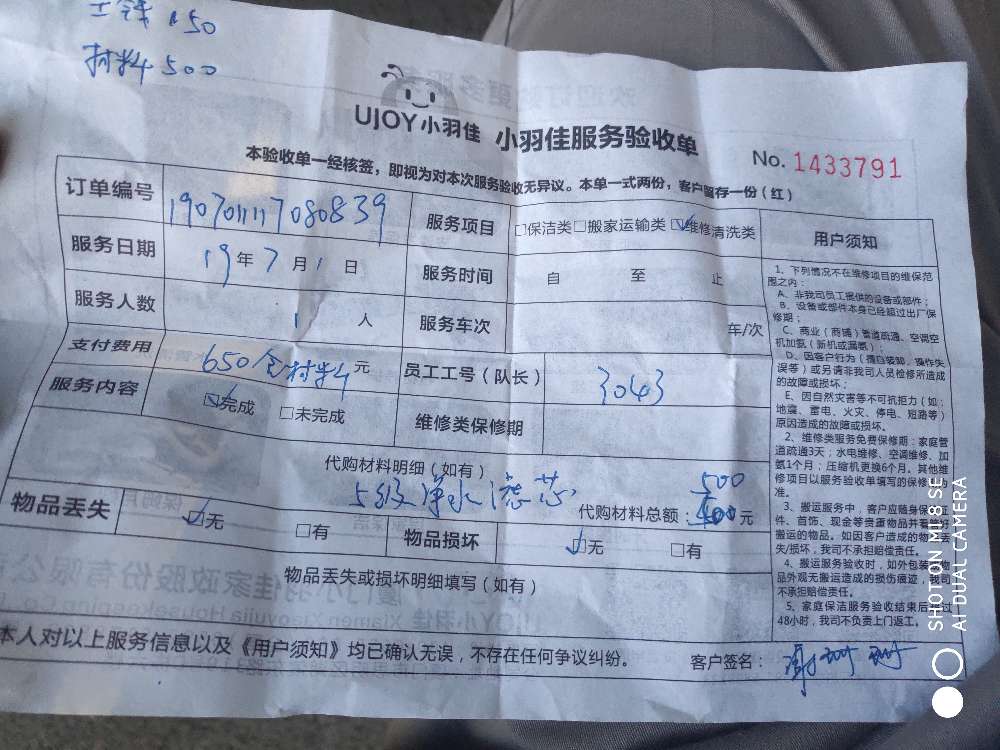 工钱150
材料500
UJOY小羽佳 小羽佳服务验收单
No. 1433791
本验收单一经核签，即视为对本次服务验收无异议。本单一式两份，客户留存一份（红）
订单编号 1907011117080839 服务项目 □保洁类□搬家运输类☑维修清洗类 用户须知
服务日期 19年7月1日 服务时间 自 至 止
服务人数 1人 服务车次 车/次
支付费用 650含材料元 员工工号（队长） 3043
服务内容 ☑完成 □未完成 维修类保修期
代购材料明细（如有）
5级净水滤芯 500
代购材料总额： 元
物品丢失 ☑无 □有 物品损坏 ☑无 □有
物品丢失或损坏明细填写（如有）
本人对以上服务信息以及《用户须知》均已确认无误，不存在任何争议纠纷。 客户签名：
1、下列情况不在维修项目的维保范
围之内：
A、非我司员工提供的设备或部件；
B、设备或部件本身已经超过出厂保
修期；
C、商业（商铺）管道疏通、空调空
机加氨（新机或漏氨）；
D、因客户行为（擅自装卸、操作失
误等）或另请非我司人员检修所造成
的故障或损坏；
E、因自然灾害等不可抗拒力（如：
地震、雷电、火灾、停电、短路等）
原因造成的故障或损坏。
2、维修类服务免费保修期：家庭管
道疏通3天；水电维修、空调维修、加
氨1个月；压缩机更换6个月。其他维
修项目以服务验收单填写的保修期为
准。
3、搬运服务中，客户应随身保管证
件、首饰、现金等贵重物品并看管好
搬运的物品。如因客户造成的物品丢
失/损坏，我司不承担赔偿责任。
4、搬运服务验收时，如外包装及物
品外观无搬运造成的损伤痕迹，我司
不承担赔偿责任。
5、家庭保洁服务验收结束后超过
48小时，我司不负责上门返工。
SHOT ON MI 8 SE
AI DUAL CAMERA